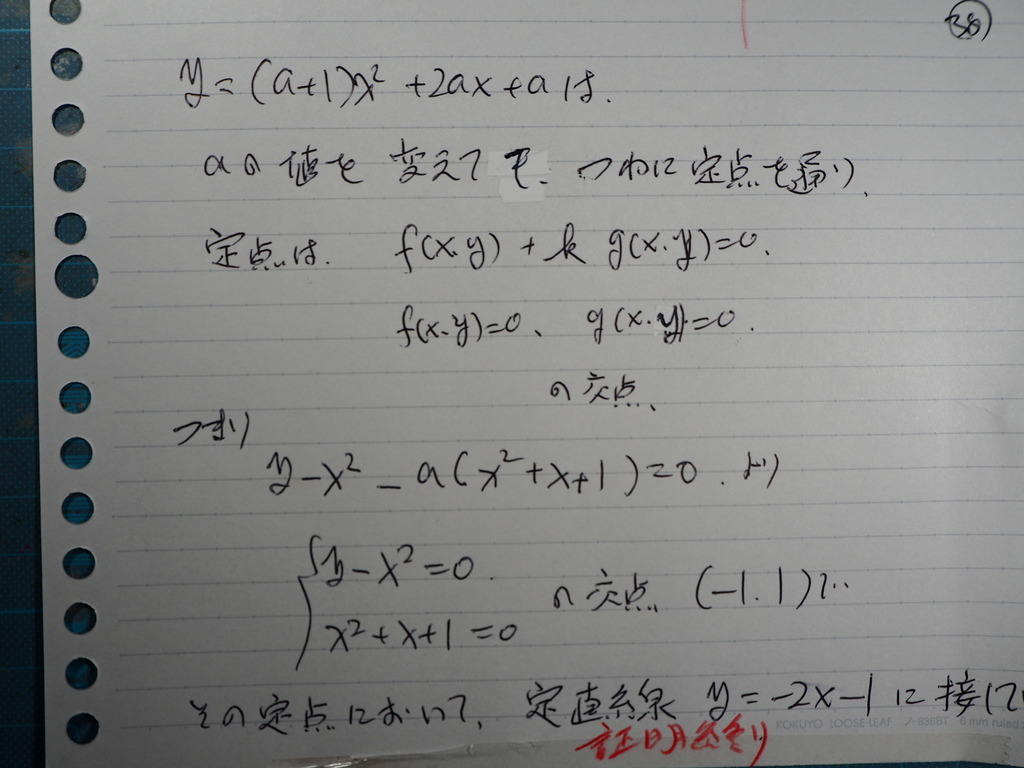 38
y=(a+1)x²+2ax+aは.
aの値を変えても、つねに定点を通り、
定点は. f(x.y)+k g(x.y)=0.
f(x.y)=0、g(x.y)=0.
の交点、
つまり
y-x²-a(x²+x+1)=0.より
{y-x²=0.
x²+x+1=0
の交点(-1.1)で..
その定点において、定直線y=-2x-1に接して
KOKUYO LOOSE-LEAF ノ-836BT 6 mm ruled
証明終り